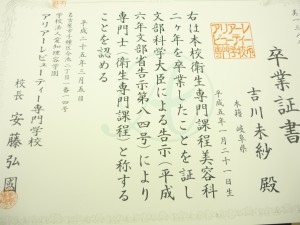 卒業証書
アリアーレ
ビューティー
専門学校
本籍 岐阜県
吉川未紗 殿
平成五年一月二十一日生
右は本校衛生専門課程美容科
二ヶ年を卒業したことを証し
文部科学大臣による告示(平成
六年文部省告示第八四号)により
専門士(衛生専門課程)と称する
ことを認める
平成二十五年三月五日
アリアーレビューティー専門学校
校長 安藤弘國